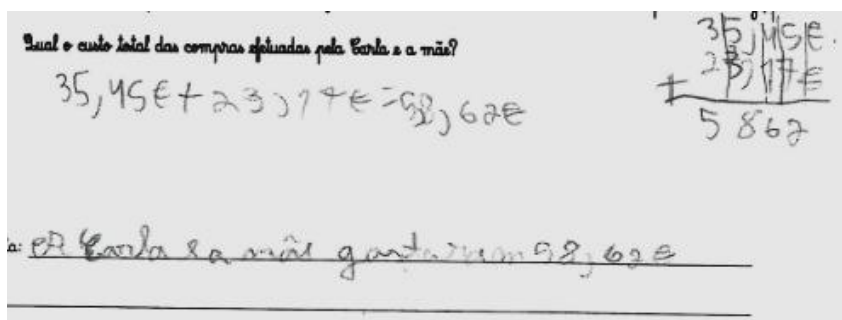 Qual o custo total das compras efetuadas pela Carla e a mãe?
35,45€
23,17€
+
5862
35,45€+23,17€=58,62€
a: A Carla e a mãe gastaram 58,62€